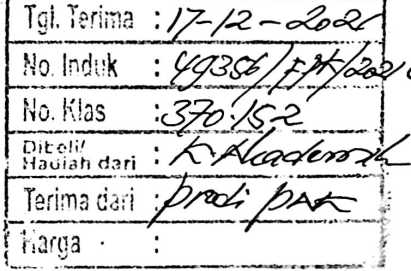 Tgl. Terima : 17-12-2021
No. Induk : 49356/FPK/2021
No. Klas : 370.152
Dibeli/
Hadiah dari : K. Akademik
Terima dari : prodi PAK
Harga :